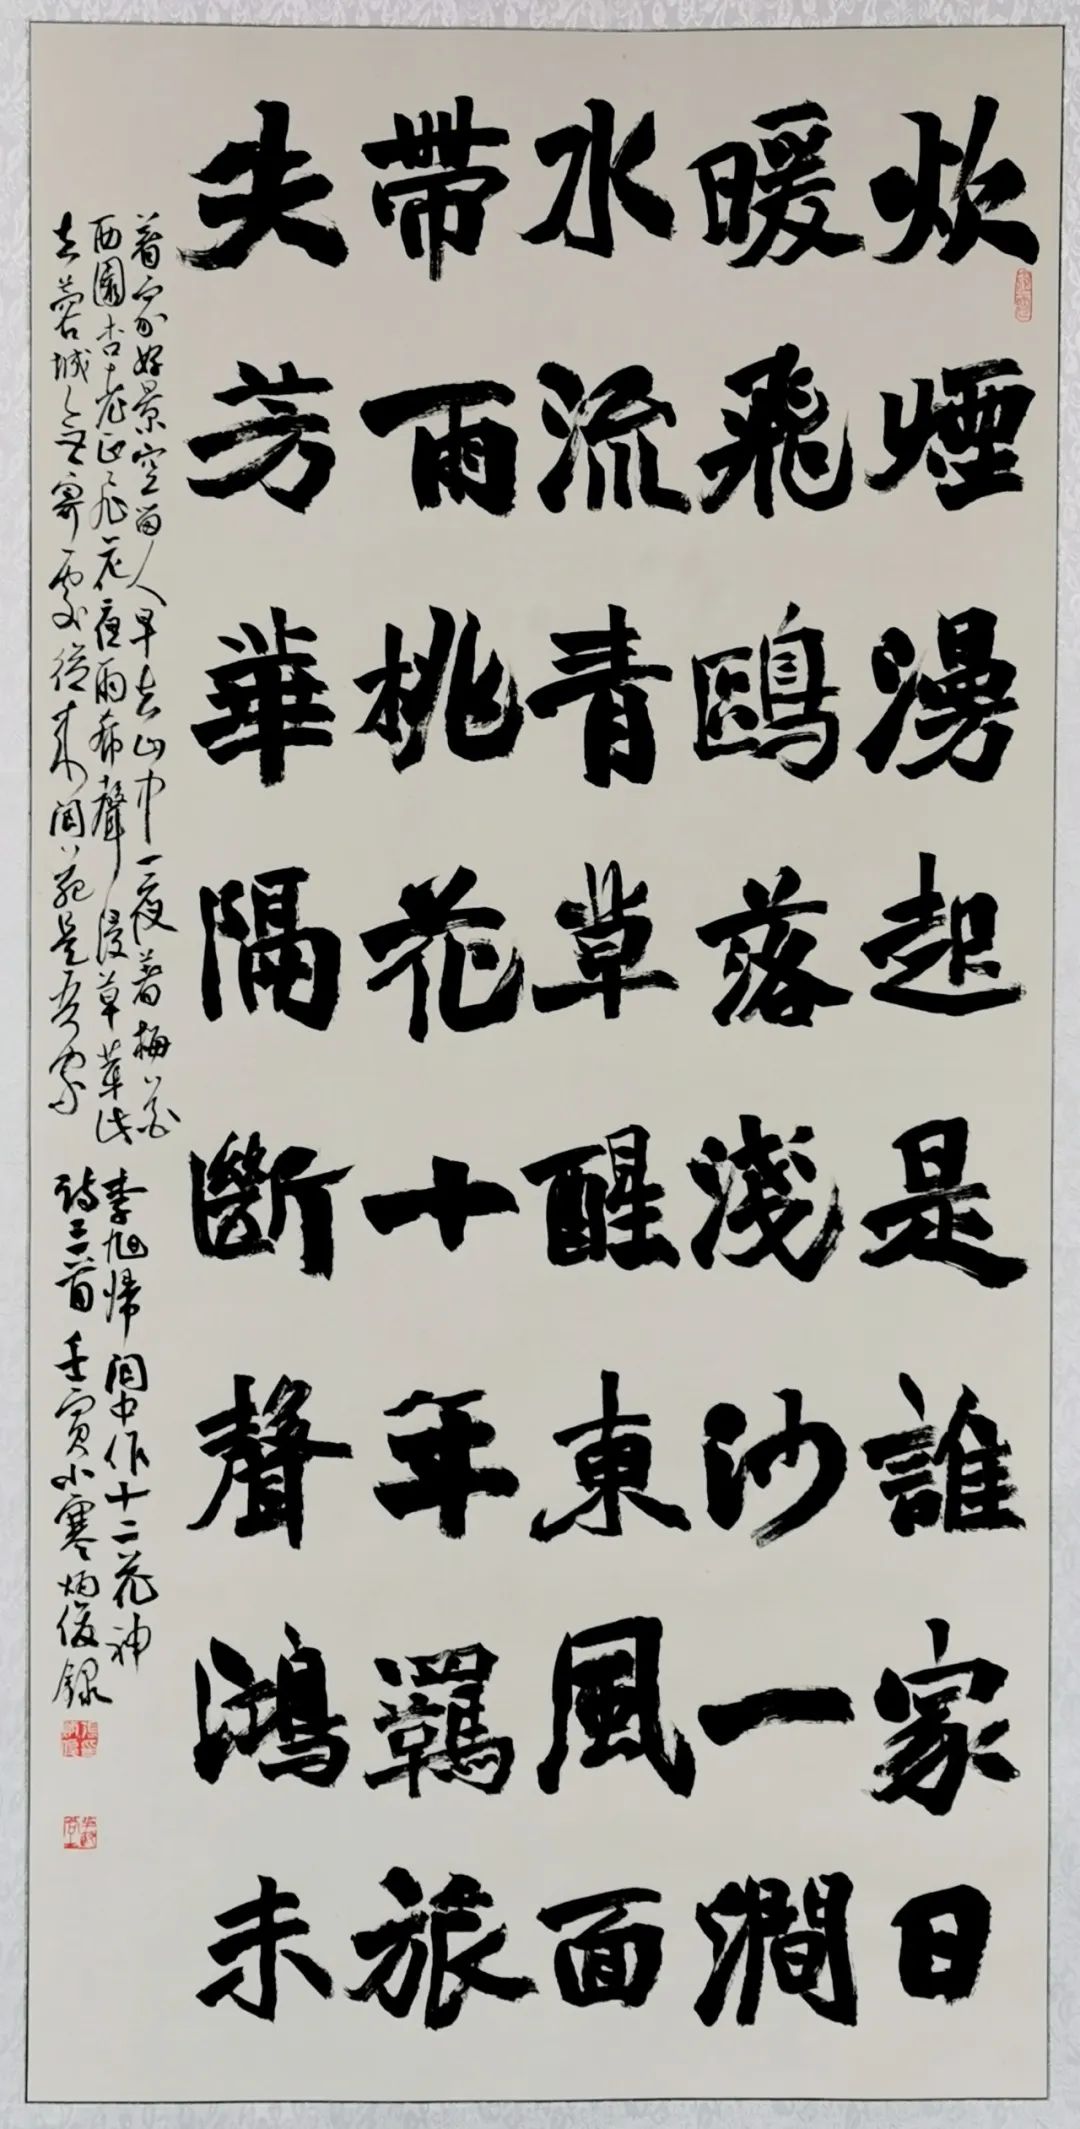 炊煙漫起是誰家日
暖飛鷗落淺沙一澗
水流青草醒東風面
帶雨桃花十年羈旅
失芳華隔斷聲鴻未
着家好景空留人早去山中一夜著梅花
西園杏花正飛花夜雨希聲浸草草此
去蓉城無寄處從來閬苑是吾家
李旭歸閬中作十二花神
詩三首壬寅小寒炳俊錄